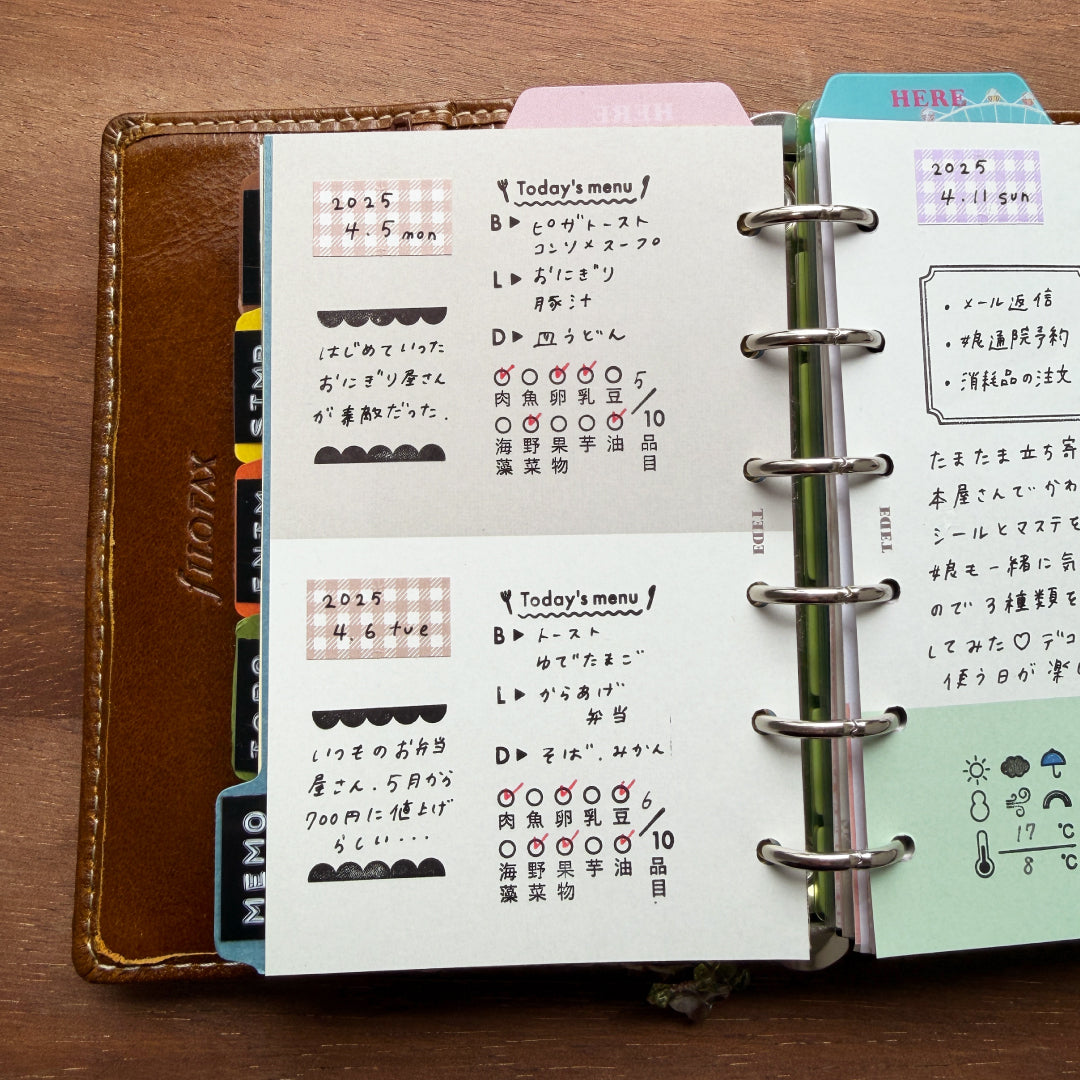 HERE
HERE
2025
4.5 mon
Today's menu
B▶ ピザトースト
コンソメスープ
L▶ おにぎり
豚汁
D▶ 皿うどん
はじめていった
おにぎり屋さん
が素敵だった.
肉 魚 卵 乳 豆
海藻 野菜 果物 芋 油
5/10品目
2025
4.6 tue
Today's menu
B▶ トースト
ゆでたまご
L▶ からあげ
弁当
D▶ そば.みかん
いつものお弁当
屋さん.5月から
700円に値上げ
らしい...
肉 魚 卵 乳 豆
海藻 野菜 果物 芋 油
6/10品目
filofax
MEMO
2025
4.11 sun
・メール返信
・娘通院予約
・消耗品の注文
たまたま立ち寄
本屋さんでかわ
シールとマステを
娘も一緒に気
ので3種類を
してみた♡デコ
使う日が楽し
17℃
8℃